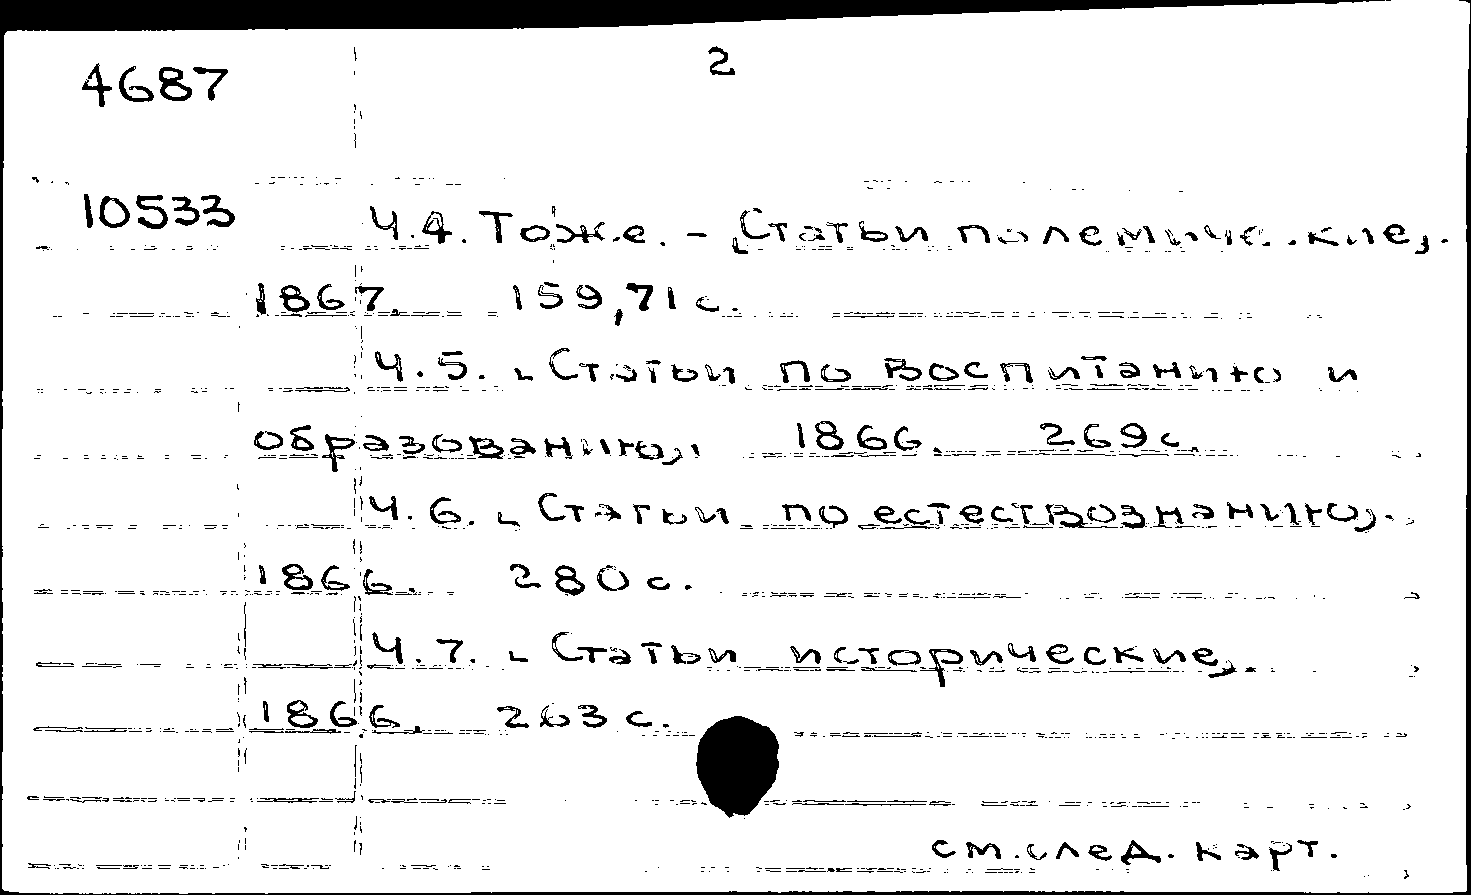 4687
2
10533
Ч.4. Тоже. - „Статьи полемические".
1867. 159,71 с.
Ч.5. „Статьи по воспитанию и
образованию" 1866. 269 с.
Ч.6. „Статьи по естествознанию".
1866. 280 с.
Ч.7. „Статьи исторические".
1866. 263 с.
см. след. карт.